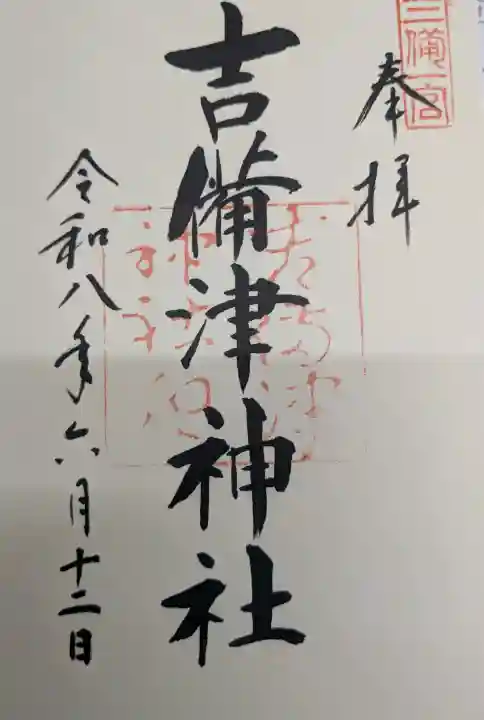 三備一宮
奉拝
吉備津神社
令和八年六月十二日